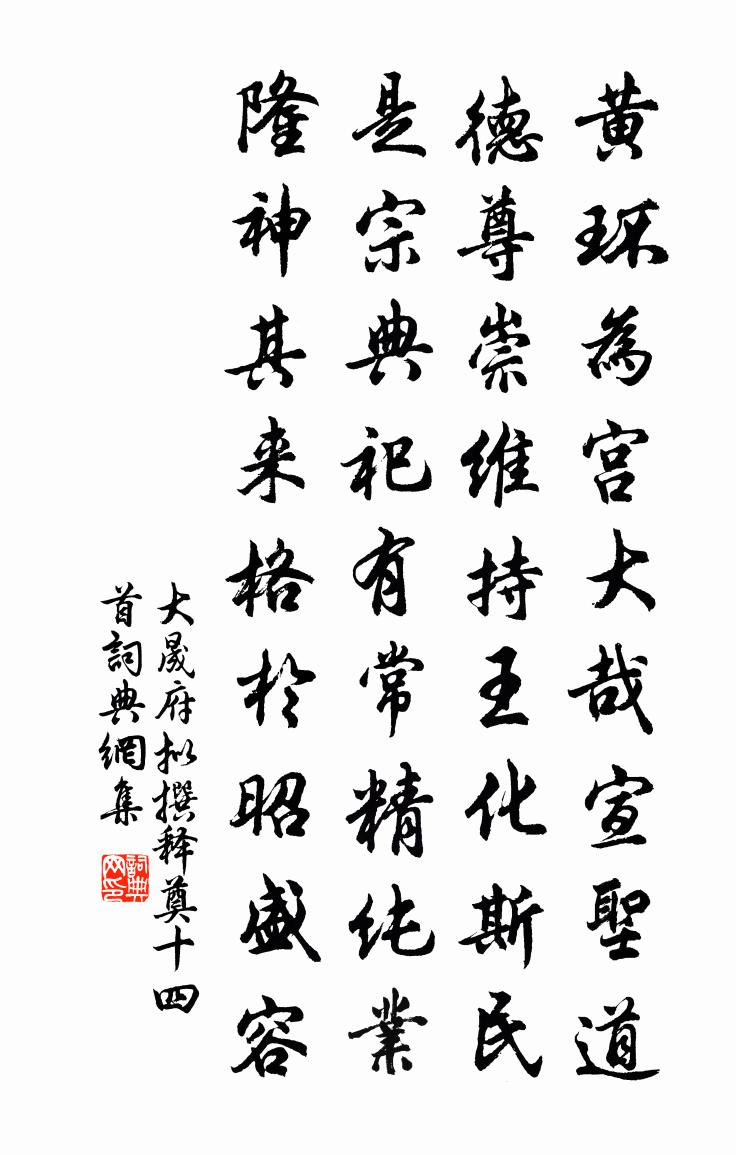 黄环為宫大哉宣聖道
德尊崇維持王化斯民
是宗典祀有常精纯業
隆神其来格於昭盛容
大晟府拟撰释奠十四
首詞典網集
詞典
网印